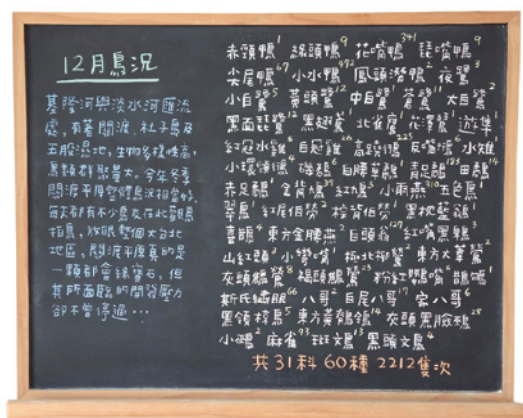 12月鳥況
基隆河與淡水河匯流
處,有著關渡、社子島及
五股濕地,生物多樣性高,
鳥類群聚量大。今年冬季
關渡平原整體鳥況相當好,
每天都有不少鳥友在此觀鳥
拍鳥,放眼整個大台北
地區,關渡平原真的是
一顆都會綠寶石,但
其所面臨的開發壓力
卻不曾停過…
赤頸鴨1 綠頭鴨9 花嘴鴨341 琵嘴鴨9
尖尾鴨67 小水鴨972 鳳頭潛鴨2 夜鷺3
小白鷺5 黃頭鷺12 中白鷺1 蒼鷺11 大白鷺2
黑面琵鷺12 黑翅鳶1 北雀鷹1 花澤鵟1 遊隼1
紅冠水雞6 白冠雞6 高蹺鴴225 反嘴鴴6 水雉
小環頸鴴4 磯鷸6 白腰草鷸1 青足鷸123 田鷸14
赤足鷸1 金背鳩39 紅鳩3 小雨燕310 五色鳥1
翠鳥1 紅尾伯勞2 棕背伯勞1 黑枕藍鶲1
喜鵲4 東方金腰燕2 白頭翁127 紅嘴黑鵯3
山紅頭2 小彎嘴1 極北柳鶯2 東方大葦鶯2
灰頭鷦鶯8 褐頭鷦鶯23 粉紅鸚嘴7 鵲鴝1
斯氏繡眼66 八哥2 白尾八哥17 家八哥6
黑領椋鳥5 東方黃鶺鴒14 灰頭黑臉鵐28
小鵐2 麻雀93 斑文鳥13 黑頭文鳥4
共31科60種2212隻次